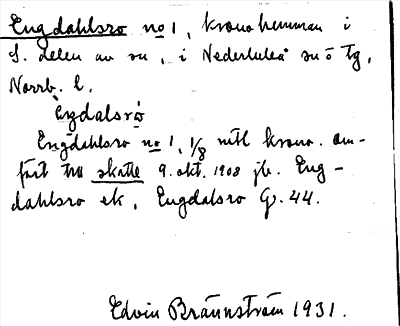 Engdahlsro no 1, kronohemman i
S. delen av sn, i Nederluleå sn o tg,
Norrb. l.
Eŋdalsrò
Engdahlsro no 1, 1/8 mtl krono. om-
fört till skatte 9. okt. 1908 jb. Eng-
dahlsro ek, Engdalsro G. 44.
Edvin Brännström 1931.